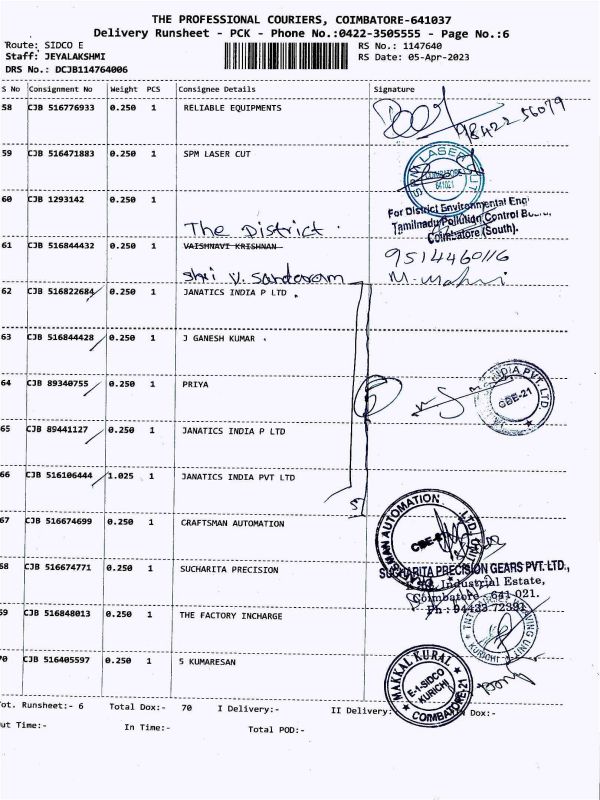 THE PROFESSIONAL COURIERS, COIMBATORE-641037
Delivery Runsheet - PCK - Phone No.:0422-3505555 - Page No.:6
Route: SIDCO E
Staff: JEYALAKSHMI
DRS No.: DCJB114764006
RS No.: 1147640
RS Date: 05-Apr-2023
S No Consignment No Weight PCS Consignee Details Signature
58 CJB 516776933 0.250 1 RELIABLE EQUIPMENTS
98422 56079
59 CJB 516471883 0.250 1 SPM LASER CUT
SPM LASER CUT
641021
60 CJB 1293142 0.250 1
The District.
For District Environmental Engi
Tamilnadu Pollution Control Board,
Coimbatore (South).
61 CJB 516844432 0.250 1 VAISHNAVI KRISHNAN
9514460116
Shri V. Sandaram
62 CJB 516822684 0.250 1 JANATICS INDIA P LTD
63 CJB 516844428 0.250 1 J GANESH KUMAR
64 CJB 89340755 0.250 1 PRIYA
INDIA PVT. LTD.
CBE-21
65 CJB 89441127 0.250 1 JANATICS INDIA P LTD
66 CJB 516106444 1.025 1 JANATICS INDIA PVT LTD
5
67 CJB 516674699 0.250 1 CRAFTSMAN AUTOMATION
68 CJB 516674771 0.250 1 SUCHARITA PRECISION
SUCHARITA PRECISION GEARS PVT. LTD.,
Industrial Estate,
Coimbatore - 641 021.
Ph : 94423 72391
69 CJB 516848013 0.250 1 THE FACTORY INCHARGE
KURICHI
70 CJB 516405597 0.250 1 S KUMARESAN
MAKKAL KURAL
E-1, SIDCO
KURICHI
COIMBATORE-21
ot. Runsheet:- 6 Total Dox:- 70 I Delivery:- II Delivery: Dox:-
ut Time:- In Time:- Total POD:-